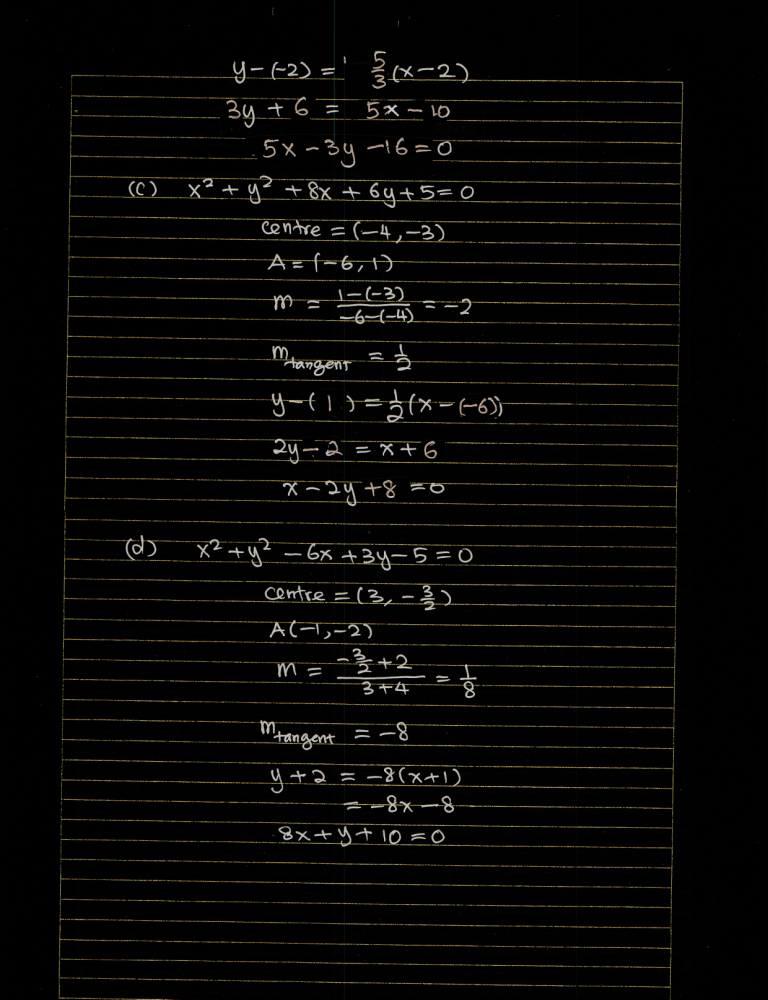 y-(-2) = 5/3(x-2)
3y + 6 = 5x - 10
5x - 3y - 16 = 0
(c) x² + y² + 8x + 6y + 5 = 0
centre = (-4, -3)
A = (-6, 1)
m = (1-(-3))/(-6-(-4)) = -2
m_tangent = 1/2
y-(1) = 1/2(x-(-6))
2y - 2 = x + 6
x - 2y + 8 = 0
(d) x² + y² - 6x + 3y - 5 = 0
centre = (3, -3/2)
A(-1, -2)
m = (-3/2 + 2)/(3+4) = 1/8
m_tangent = -8
y + 2 = -8(x+1)
= -8x - 8
8x + y + 10 = 0